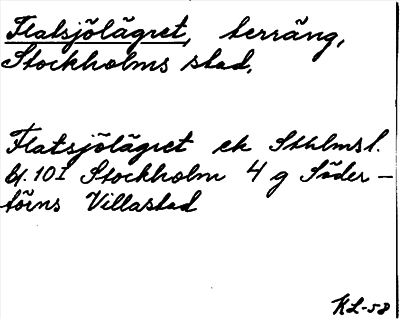 Flatsjölägret, terräng,
Stockholms stad.
Flatsjölägret ek Sthlmsl.
bl. 10I Stockholm 4 g Söder-
törns Villastad
KL-58